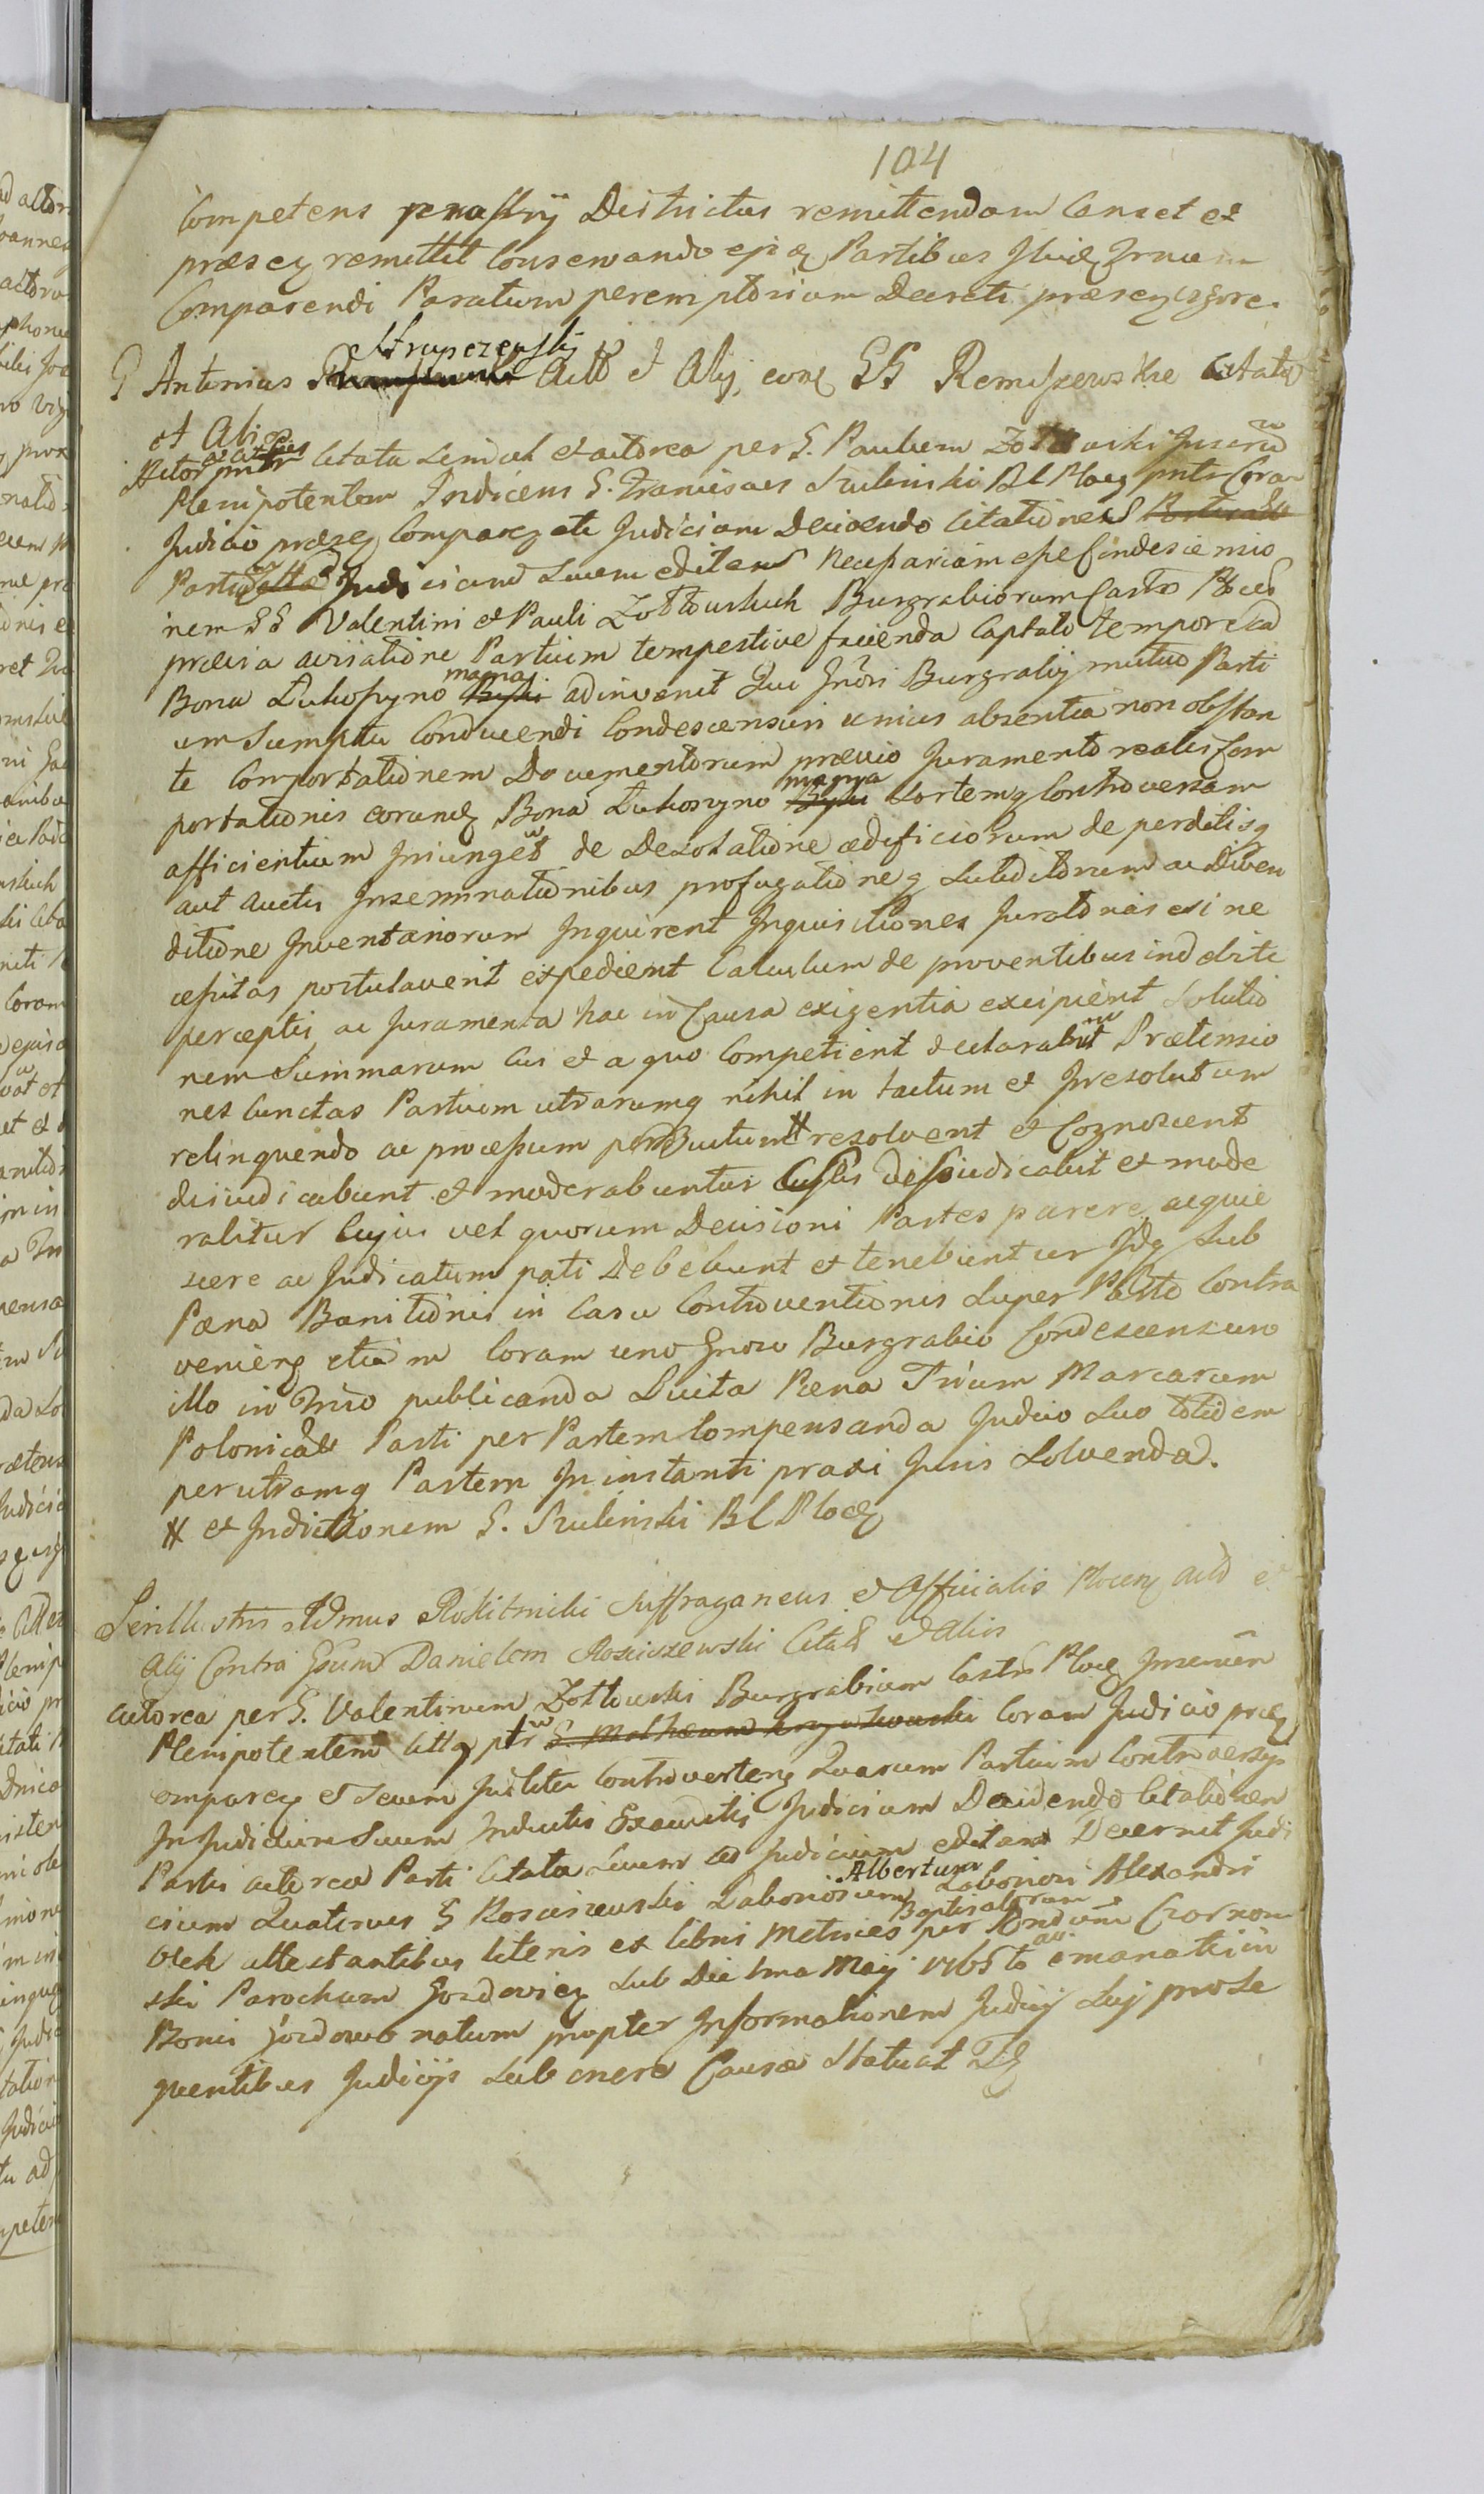 104
Competens pcnastrij Districtus remittendam Censet et
præsey remittit Conservando ejsq Partibus Ibidq Irnum
Comparendi Paratum peremptorium Decreti præseq vigore.
G Antonius Strupczewski Actt et Alij cone GG Remiszewskie Citatos
et Alios
Actor ac citt ptes pntr Citata Semet et actorea per G. Paulum Zottowski Juseru
Plenipotentem Indicens G. Franciscus Szulinski BC Ploceq pntr Coram
Judicio præseq Compareq ete Judicium Decidendo Citationes
Parti Judicium Suum editas Necessariam esse Condescensio
nem GG Valentini et Pauli Zottowskich Burgrabiorum Castr Ploceq
prævia avisatione Partium tempestive facienda Captato tempore ad
Bona Lukoszyno magna adinvenit Qui Gnosi Burgrabij mutuo Parti
um Sumptu Conducendi Condescensuri unius absentia non obstan
te Comportationem Documentorum prævio Juramento realis Com
portationis eorundq Bona Lukoszyno magna Sortemq Controversam
afficientium Injunget de Desolatione ædificiorum de perditisq
aut auctis Inseminationibus profugationeq Subditorum ac Diven
ditione Inventariorum Inquirent Inquisitiones Juratorias si ne
cessitas postulaverit expedient Calculum de proventibus indebite
perceptis, ac Juramenta hac in Causa exigentia excipient Solutio
nem Summarum Cui et a quo Competient declarabunt Prætensio
nes Cunctas Partium utrarumq nihil in tactum et Irresolutum
relinquendo ac processum perductum # resolvent et Cognoscent
dijudicabunt et moderabuntur Custus dejudicabit et mode
rabitur Cujus vel quorum Decisioni Partes parere, acquie
scere ac Judicatum pati Debebunt et tenebuntur Idq Sub
Pæna Banitionis in Casu Contraventionis Super Parte Contra
venienq etiam Coram uno Gnoso Burgrabio Condescensuro
illo in Trno publicanda Luita Pæna Trium Marcarum
Polonicales Parti per Partem Compensanda Judicio Suo totidem
perutramq Partem In instanti praxi Juris Solvenda.
# et Indictionem G. Szulinski BC Ploceq
Perillustris Rdmus Rokitnicki Suffraganeus et Officialis Plocenq Actt et
Alij Contra Gsum Danielem Rosciszewski Citatt et Alios
Actorea per G. Valentinum Zottowski Burgrabium Castr Ploceq Inseruen
Plenipotentem Cittq ptr G. Mathæum Krzyzkowski Coram Judicio præq
ompareq et Seum Juditer Controverteng Quarum Partium Controversijs
In Judicium Suum Inductis Exauditis Judicium Decidendo Citationem
Partis actorea Parti Citata Suum ad Judicium editam Decernit Judi
cium Quatenus G Rosciszewski Laboriosum Albertum Laboriosi Alexandri
Olek attestantibus literis ex libri Metrices Baptisatorum per Rndum Czarnom
ski Parochum Gozdoviq Sub Die 1ma Maij 1765to ani emanatis in
Bonis Gozdowo natum propter Informationem Judicij Suj prose
quentibus Judicijs Sub onere Causæ Statuat Tq